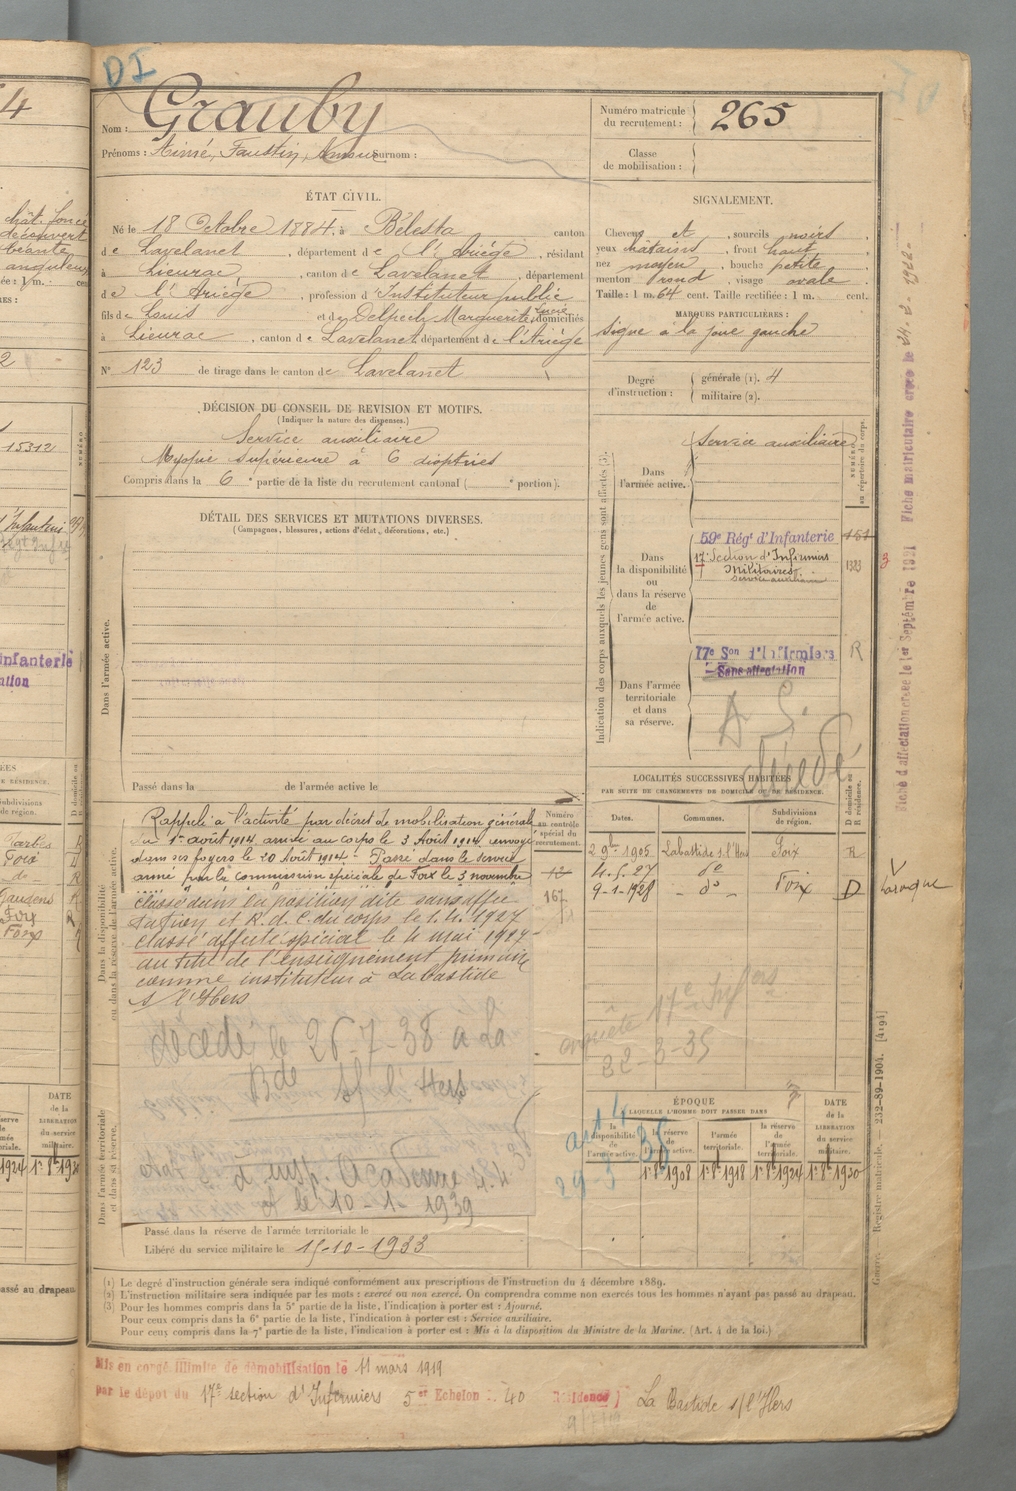 DI
Nom : Grauby
Prénoms : Aimé, Faustin, Amour Surnom :
Numéro matricule du recrutement : 265
Classe de mobilisation :
ÉTAT CIVIL.
Né le 18 Octobre 1884, à Bélesta canton
de Lavelanet, département de l'Ariège, résidant
à Lieurac, canton de Lavelanet, département
de l'Ariège, profession d'Instituteur public
fils de Louis et de Delpech Marguerite, Lucie domiciliés
à Lieurac, canton de Lavelanet département de l'Ariège
N° 123 de tirage dans le canton de Lavelanet
SIGNALEMENT.
Cheveux et, sourcils noirs,
yeux châtains, front haut,
nez moyen, bouche petite,
menton rond, visage ovale.
Taille : 1 m. 64 cent. Taille rectifiée : 1 m. cent.
MARQUES PARTICULIÈRES :
signe à la joue gauche
Degré d'instruction : générale (1). 4
militaire (2).
DÉCISION DU CONSEIL DE REVISION ET MOTIFS.
(Indiquer la nature des dispenses.)
Service auxiliaire
Myopie supérieure à 6 dioptries
Compris dans la 6e partie de la liste du recrutement cantonal (e portion).
DÉTAIL DES SERVICES ET MUTATIONS DIVERSES.
(Campagnes, blessures, actions d'éclat, décorations, etc.)
Dans l'armée active.
Passé dans la de l'armée active le
Indication des corps auxquels les jeunes gens sont affectés (3).
NUMÉRO au répertoire du corps.
Dans l'armée active.
Service auxiliaire
Dans la disponibilité ou dans la réserve de l'armée active.
59e Régt d'Infanterie
17e Section d'Infirmiers
Militaires.
Service auxiliaire
1323
3
Dans l'armée territoriale et dans sa réserve.
17e Son d'Infirmiers
Sans affectation
R
A S.
décédé
Fiche d'affectation créée le 1er Septembre 1921 Fiche matriculaire créée le
LOCALITÉS SUCCESSIVES HABITÉES
PAR SUITE DE CHANGEMENTS DE DOMICILE OU DE RÉSIDENCE.
Dates. Communes. Subdivisions de région. D domicile ou R résidence.
2 9bre 1905 Labastide s. l'Hers Foix R
4-5-27 do
9-1-1928 - do - Foix D Laroque
Dans la disponibilité ou dans la réserve de l'armée active.
Numéro au contrôle spécial du recrutement.
167
Rappelé à l'activité par décret de mobilisation générale
du 1er août 1914, arrivé au corps le 3 Août 1914, envoyé
dans ses foyers le 20 Août 1914 - Passé dans le service
armé par la commission spéciale de Foix le 3 novembre
classé dans la position dite sans affec
tation et R. d. C. du corps le 1. 4. 1927
classé affecté spécial le 4 mai 1927-
au titre de l'enseignement primaire
comme instituteur à Labastide
s/ l'Hers
décédé le 26-7-38 à La
Bde s/ l'Hers
d'insp. Académie
le 10-1-1939
17e Inf
22-3-35
art 4
Dans l'armée territoriale et dans sa réserve.
Passé dans la réserve de l'armée territoriale le
Libéré du service militaire le 15-10-1933
ÉPOQUE
À LAQUELLE L'HOMME DOIT PASSER DANS
la disponibilité de l'armée active. la réserve de l'armée active. l'armée territoriale. la réserve de l'armée territoriale.
DATE de la LIBÉRATION du service militaire.
1er 8bre 1908 1er 8bre 1918 1er 8bre 1924 1er 8bre 1930
(1) Le degré d'instruction générale sera indiqué conformément aux prescriptions de l'instruction du 4 décembre 1889.
(2) L'instruction militaire sera indiquée par les mots : exercé ou non exercé. On comprendra comme non exercés tous les hommes n'ayant pas passé au drapeau.
(3) Pour les hommes compris dans la 5e partie de la liste, l'indication à porter est : Ajourné.
Pour ceux compris dans la 6e partie de la liste, l'indication à porter est : Service auxiliaire.
Pour ceux compris dans la 7e partie de la liste, l'indication à porter est : Mis à la disposition du Ministre de la Marine. (Art. 4 de la loi.)
Guerre. — Registre matricule. — 232-89-1904. [4194]
Mis en congé illimité de démobilisation le 11 mars 1919
par le dépôt du 17e section d'Infirmiers 5e Echelon : 40 Résidence) La Bastide s/l'Hers